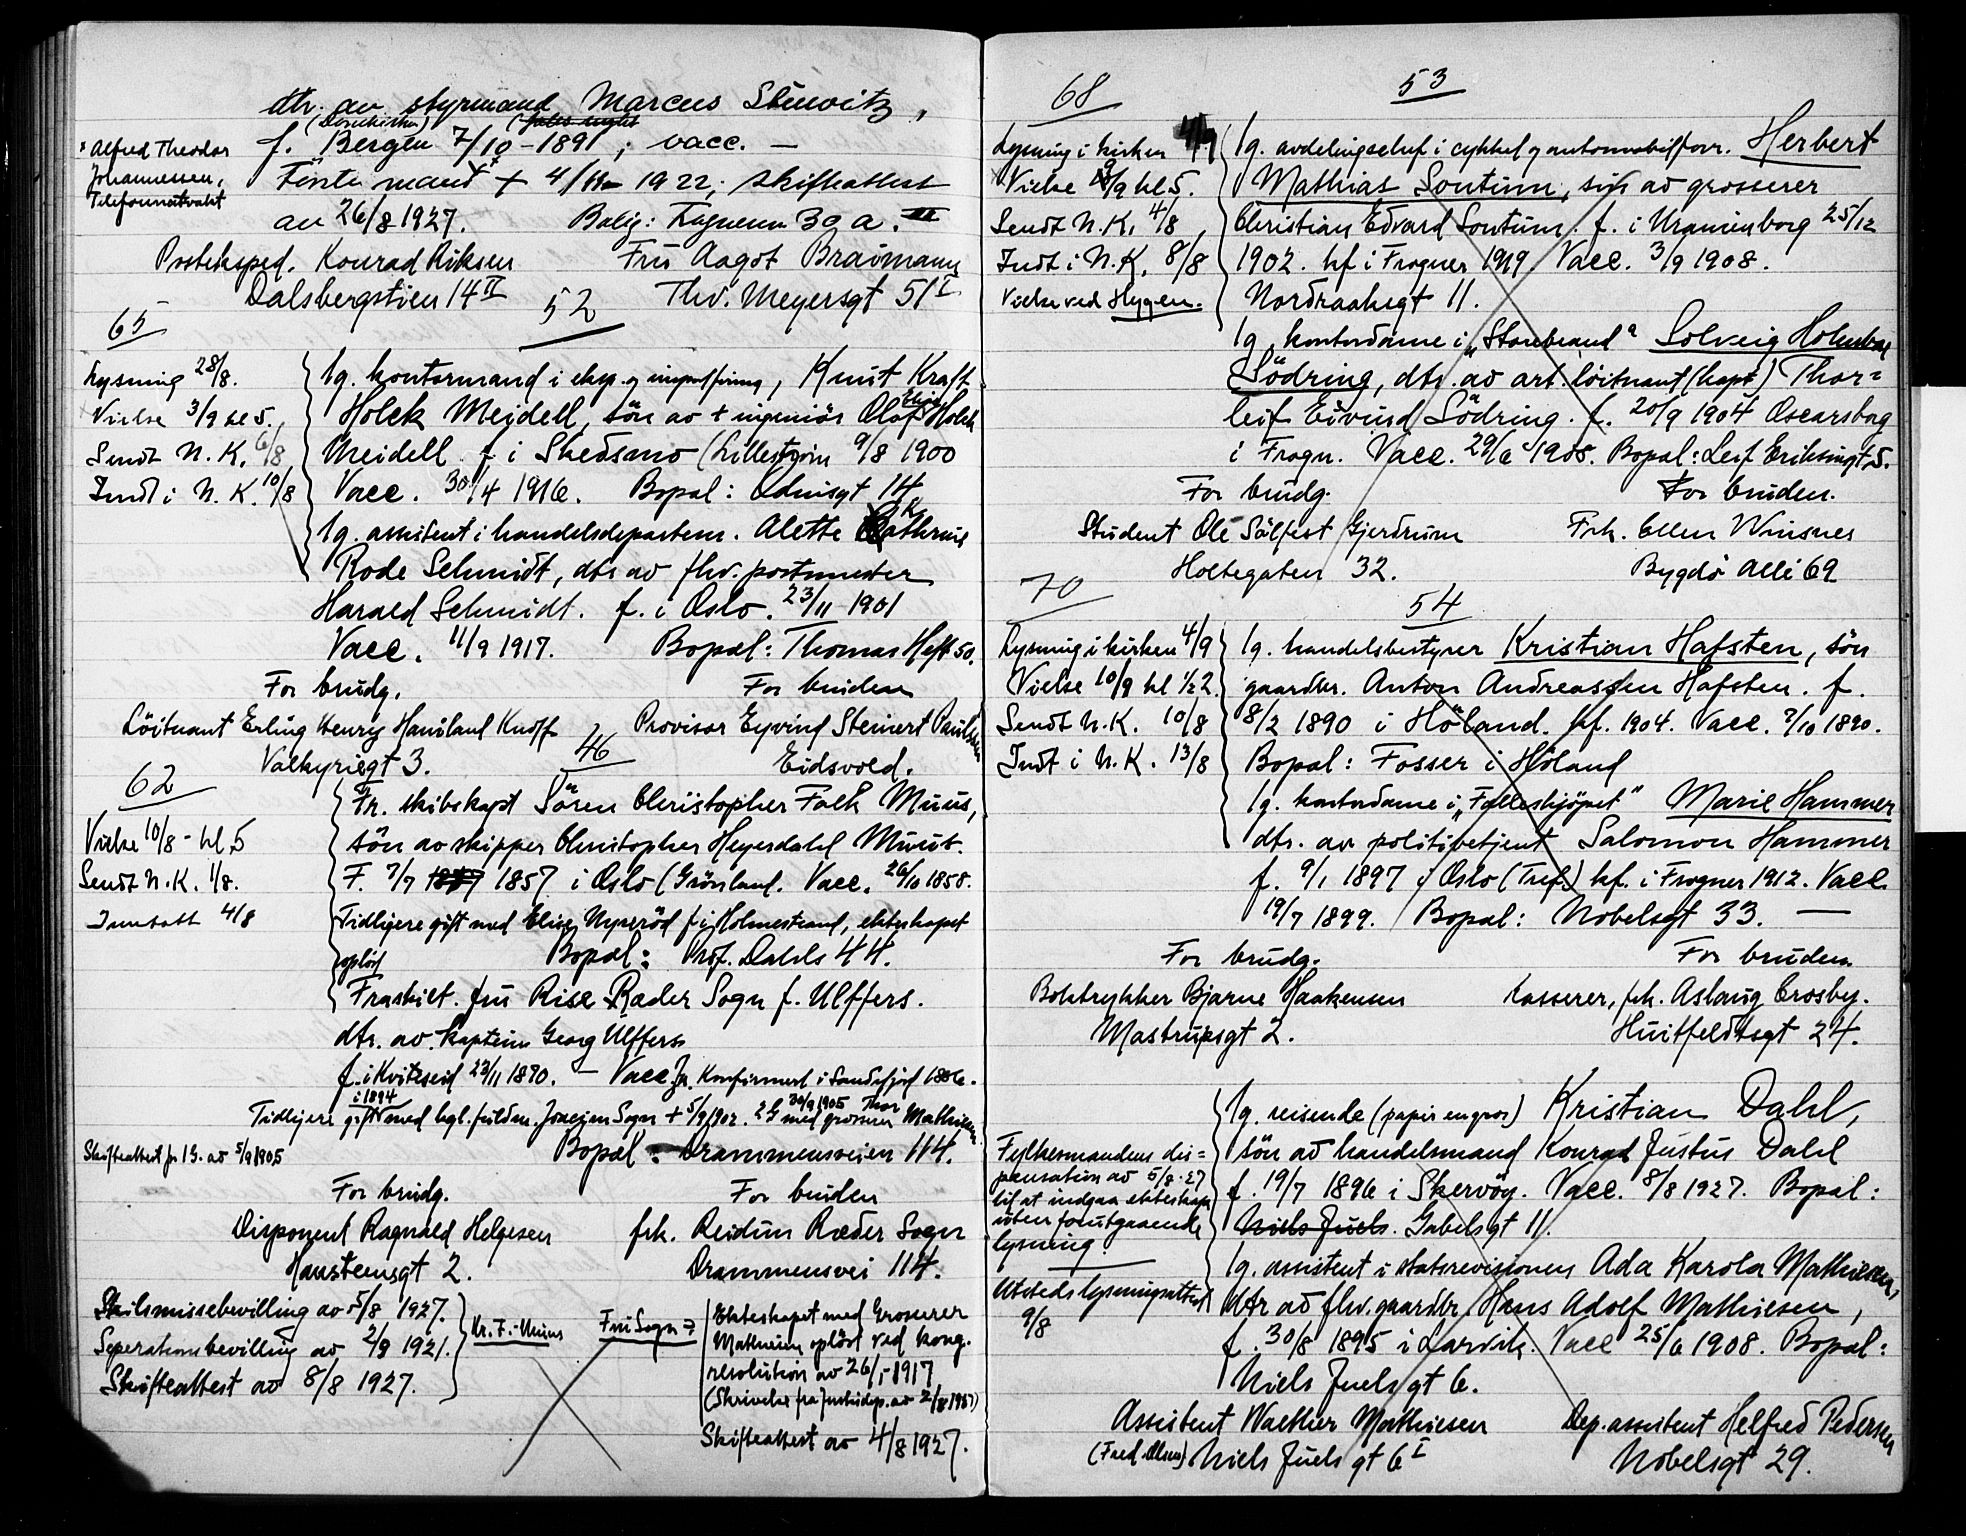 dtr. av styrmand Marcus Stuwitz,
(Domkirken)
f. Bergen 7/10 - 1891, vacc. —
Alfred Theodor
Johannessen,
Telefonnatvakt
Första mand + 4/11 - 1922; skifteattest
av 26/8 1927. Bolig: 30 a. III
Posteksped. Konrad Riksen
Dalsbergstien 14 II
Fru Aagot Braümann
Thv. Meyersgt 51 I
65
52
Lysning 28/8.
Vielse 3/9 kl 5.
Sendt N. K. 6/8
Indt i N. K. 10/8
Ug. kontormand i eksp. og importfirma, Knut Kraft
Holck Meidell, sön av + ingeniör Olaf Holck
Meidell f i Skedsmo (Lilleström 9/8 1900
Vacc. 30/4 1916. Bopæl: Odinsgt 14
Ug. assistent i handelsdepartem. Alette Kathrine
Rode Schmidt, dtr av fhv. postmester
Harald Schmidt. f. i Oslo. 23/11 1901
Vacc. 11/9 1917. Bopæl: Thomas Heft 50.
For brudg. For bruden
Löitnant Erling Henry Hauiland Knoff
Valkyriegt 3.
Provisor Eyvind Steinert Paulsen
Eidsvold.
62
46
Vielse 10/8 - kl. 5
Sendt N. K. 1/8.
Inntatt 4/8
Fr. skibskapt Sören Christopher Falk Muus,
sön av skipper Christopher Heyerdahl Muus.
F. 7/7 1857 i Oslo (Grönland. Vacc. 26/10 1858.
Tidligere gift med Elise Nyseröd f i Holmestrand, ekteskapet
oplöst Bopæl: Prof. Dahls 44.
Fraskilt. fru Rise Ræder Sogn f. Ulffers.
dtr. av. Kaptein Georg Ulffers
f. i Kviteseid 23/11 1870. — Vacc Ja. Konfirmert i Sandefjord 1886.
i 1894
Tidligere gift med kgl. fuldm. Joacjim Sogn + 5/9 1902. 2 G 30/9 1905 med grosserer Thor Mathiesen
Skifteattest for 1 G. av 5/9 1905
Bopæl: Drammensveien 114.
For brudg. For bruden
Disponent Ragnvald Helgesen
Hansteensgt 2.
frk. Reidun Ræder Sogn
Drammensvei 114.
Skilsmissebevilling av 5/8 1927.
Seperationsbevilling av 2/9 1921.
Skifteattest av 8/8 1927.
Hr. F. Muus
Fru Sogn
Ekteskapet med Grosserer
Mathiesen oplöst ved kong.
resolution av 26/1 - 1917
(Skrivelse fra Justisdep. av 2/8 1927)
Skifteattest av 4/8 1927.
68
53
Lysning i kirken 4/9
Vielse 18/9 kl 5.
Sendt N. K. 4/8
Indt i N. K. 8/8
Vielse ved Hygen.
Ug. avdelingschef i cykkel og automobilforr. Herbert
Mathias Sontum, sön av grosserer
Christian Edvard Sontum. f. i Uranienborg 25/12
1902. kf i Frogner 1919. Vacc. 3/9 1908.
Nordraaksgt 11.
Ug kontordame i "Storebrand" Solveig Holmboe
Södring, dtr. av art. löitnant (kapt) Thor-
leif Eivind Södring. f. 20/9 1904 Oscarsborg
i Frogn. Vacc. 29/6 1905. Bopæl: Leif Eriksungt 5.
For brudg. For bruden.
Student Ole Sölfest Gjerdrum
Holtegaten 32.
Frk. Ellen Winsnes
Bygdö Alle 69
70
54
Lysning i kirken 4/9
Vielse 10/9 kl 1/2 2.
Sendt N. K. 10/8
Indt i N. K. 13/8
Ug. handelsbestyrer Kristian Hafsten, sön
gaardbr. Anton Andreassen Hafsten. f.
8/2 1890 i Höland. kf. 1904. Vacc. 7/10 1890.
Bopæl: Fosser i Höland
Ug. kontordame i "Felleskjöpet" Marie Hammer
dtr. av politibetjent Salomon Hammer
f. 9/1 1897 i Oslo (Tref.) kf. i Frogner 1912. Vacc.
19/7 1899. Bopæl: Nobelsgt 33. —
For brudg. For bruden
Boktrykker Bjarne Haakensen
Mastrupsgt 2.
Kasserer, frk. Aslaug Crosby.
Huitfeldtsgt 24.
Fylkesmandens dis-
pensation av 5/8-27
til at indgaa ekteskap
uten forutgaaende
lysning.
Utstedt lysningsattest
9/8
Ug. reisende (papir engros) Kristian Dahl,
sön av handelsmand Konrad Justus Dahl
f. 19/7 1896 i Skervöy. Vacc. 8/8 1927. Bopæl:
Niels Juels. Gabelsgt 11.
Ug. assistent i statsrevisionen Ada Karola Mathiesen,
dtr av fhv. gaardbr. Hans Adolf Mathiesen,
f. 30/8 1895 i Larvik. Vacc 25/6 1908. Bopæl:
Niels Juelsgt 6.
Assistent Walther Mathiesen
(Fred Olsen) Niels Juels gt 6 I
Dep. assistent Helfred Pedersen
Nobelsgt 29.